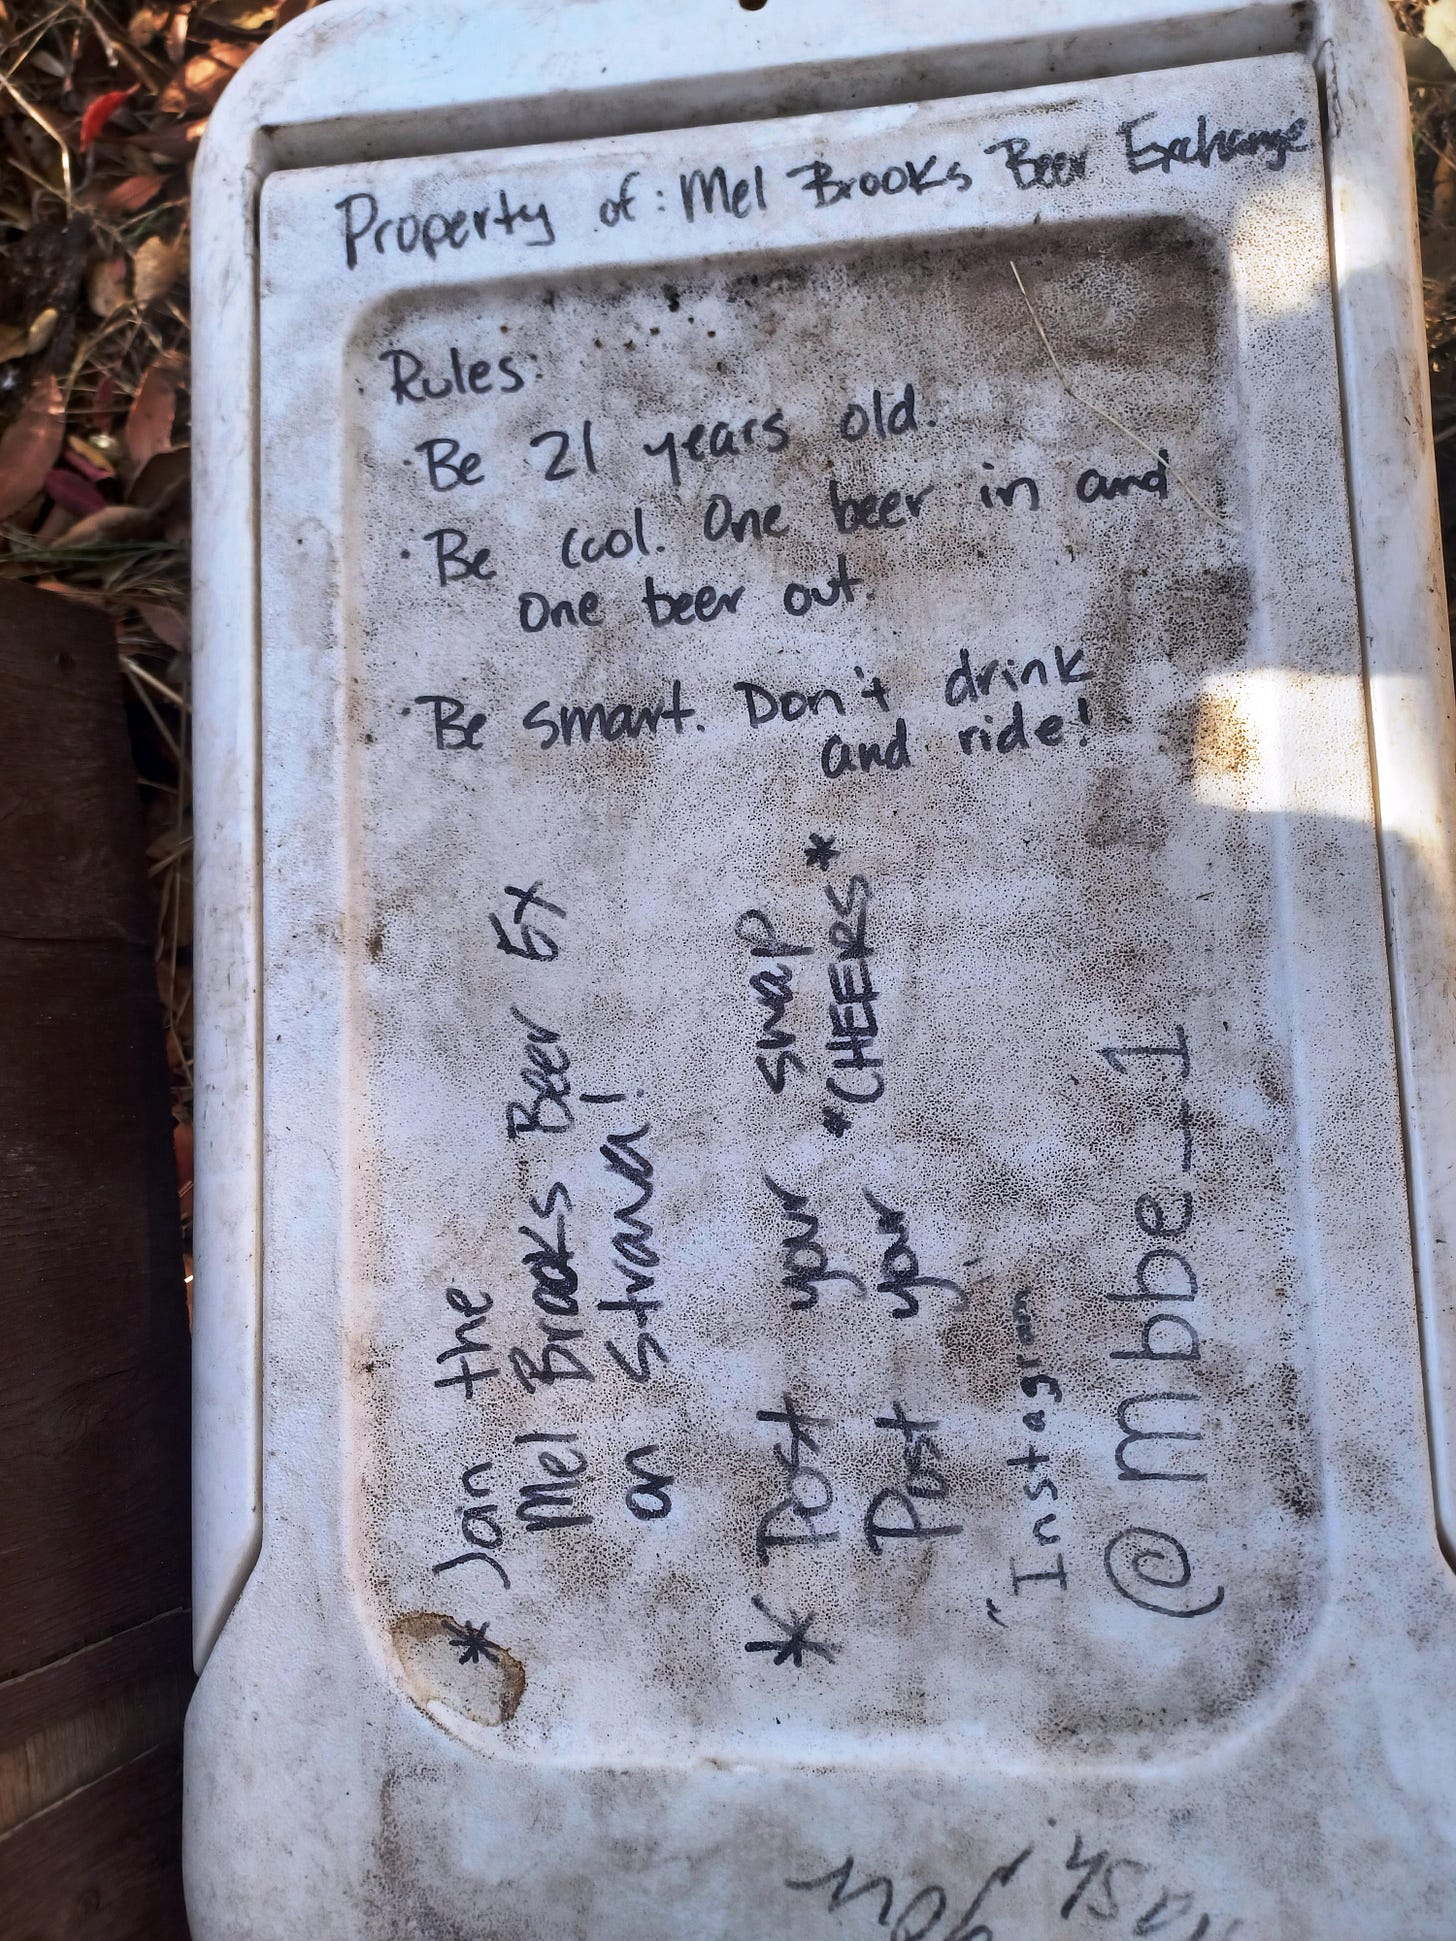 Property of: Mel Brooks Beer Exchange
Rules:
· Be 21 years old.
· Be cool. One beer in and
one beer out.
· Be smart. Don't drink
and ride!
* Join the
Mel Brooks Beer Ex
on Strava!
* Post your snap
Post your *CHEERS*
"Instagram
@mbbe_1
you